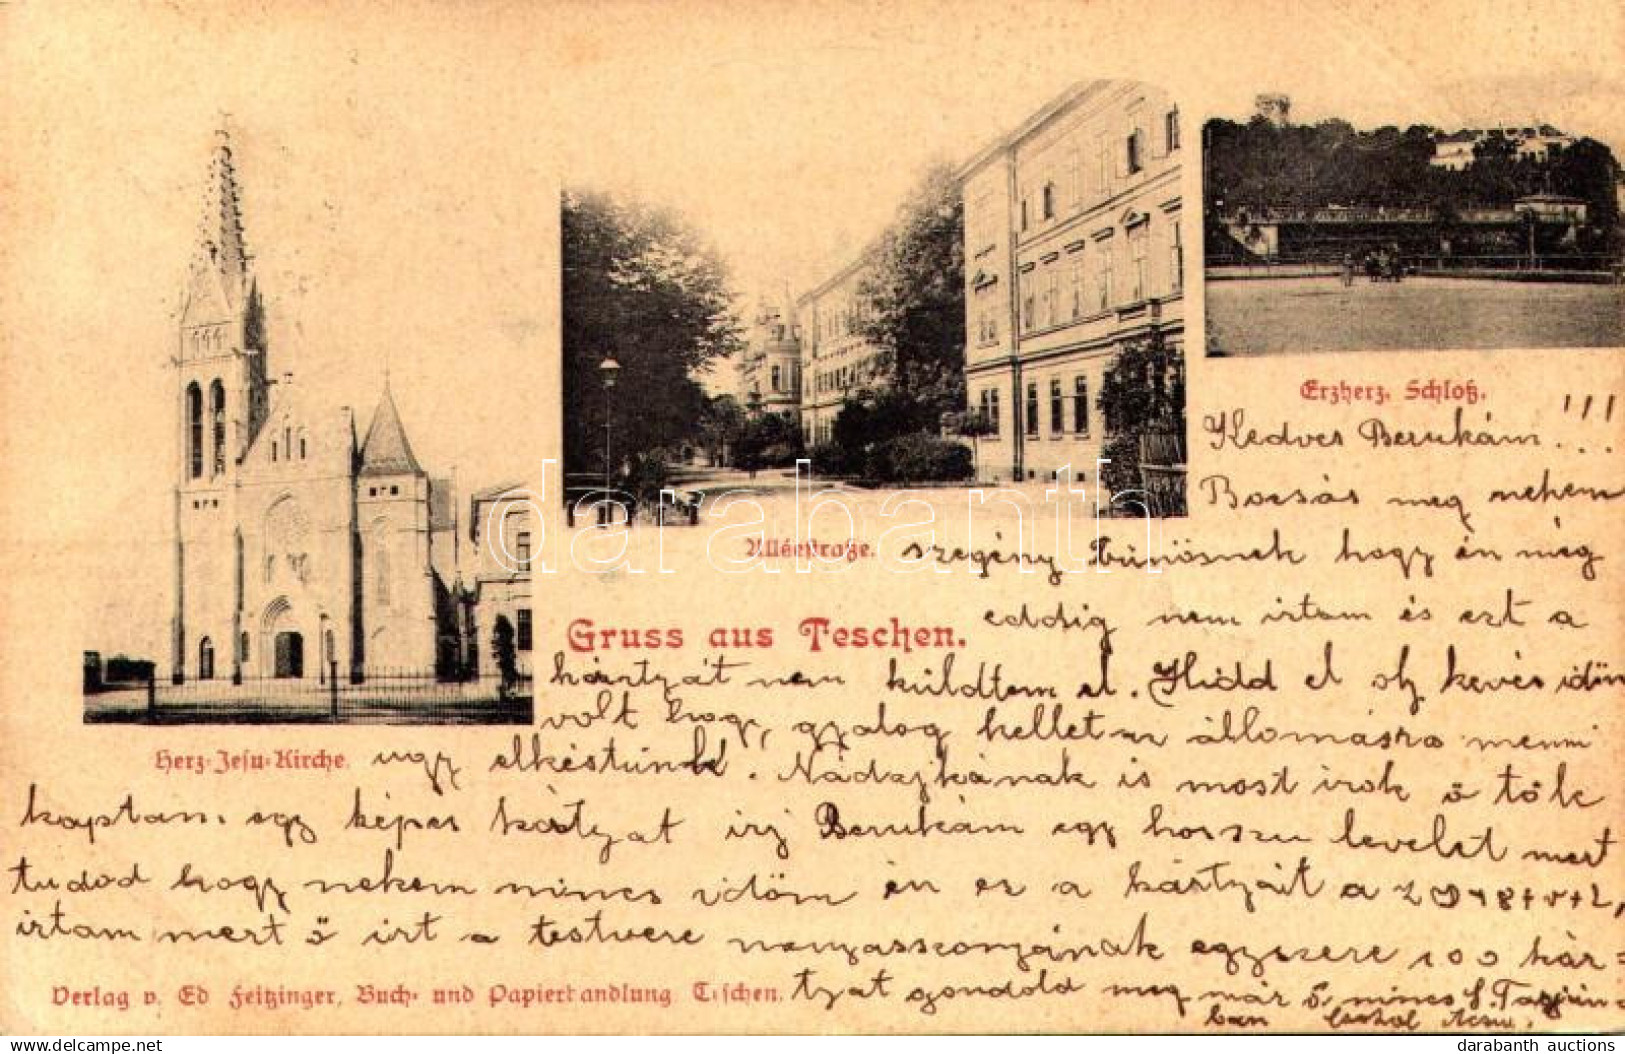 Erzherz. Schloß.
Kedves Berukám!!!
Bocsás meg nekem
Alléestraße.
szegény bünösnek hogy én még
Gruss aus Teschen.
eddig nem irtam és ezt a
kártyát nem küldtem el. Hidd el oly kevés időm
volt hogy gyalog kellet az állomásra menni
Herz-Jesu-Kirche.
ugy elkéstünk. Nádajkának is most irok ő tőle
kaptam egy képes kártyat irj Berukám egy hosszu levelet mert
tudod hogy nekem nincs időm én ez a kártyáit a
irtam mert ő irt a testvere nenyasszonyának egyszere 100 kár=
Verlag v. Ed Feitzinger, Buch- und Papierhandlung Teschen.
tyat gondold meg már ő nincs
ban
darabanth
darabanth auctions